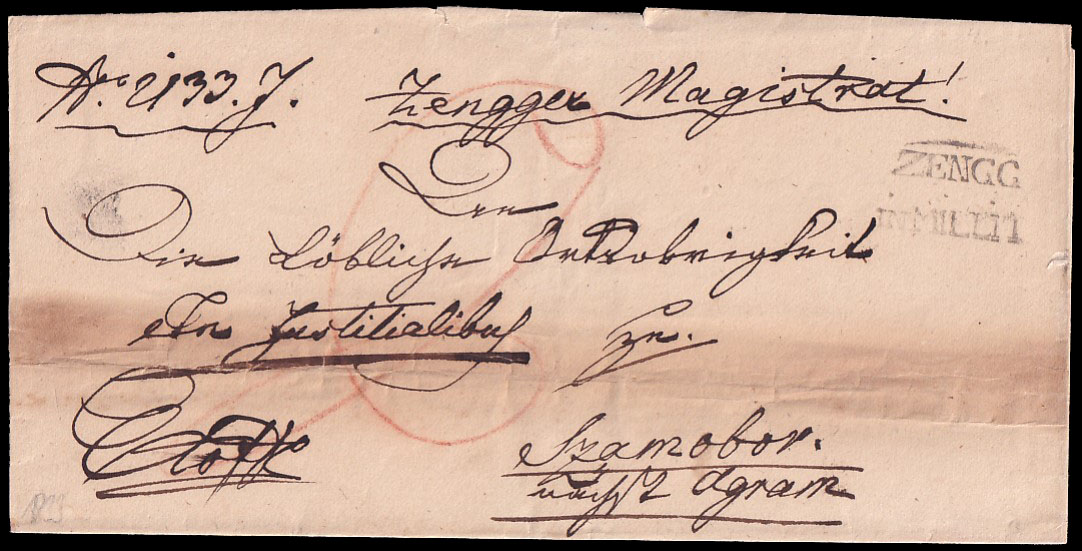 No. 2133. J. Zengger Magistrat!
ZENGG
IN MILLIT
An
Die Löbliche Ortsobrigkeit
Justitialibus zu.
Szamobor.
nächst Agram